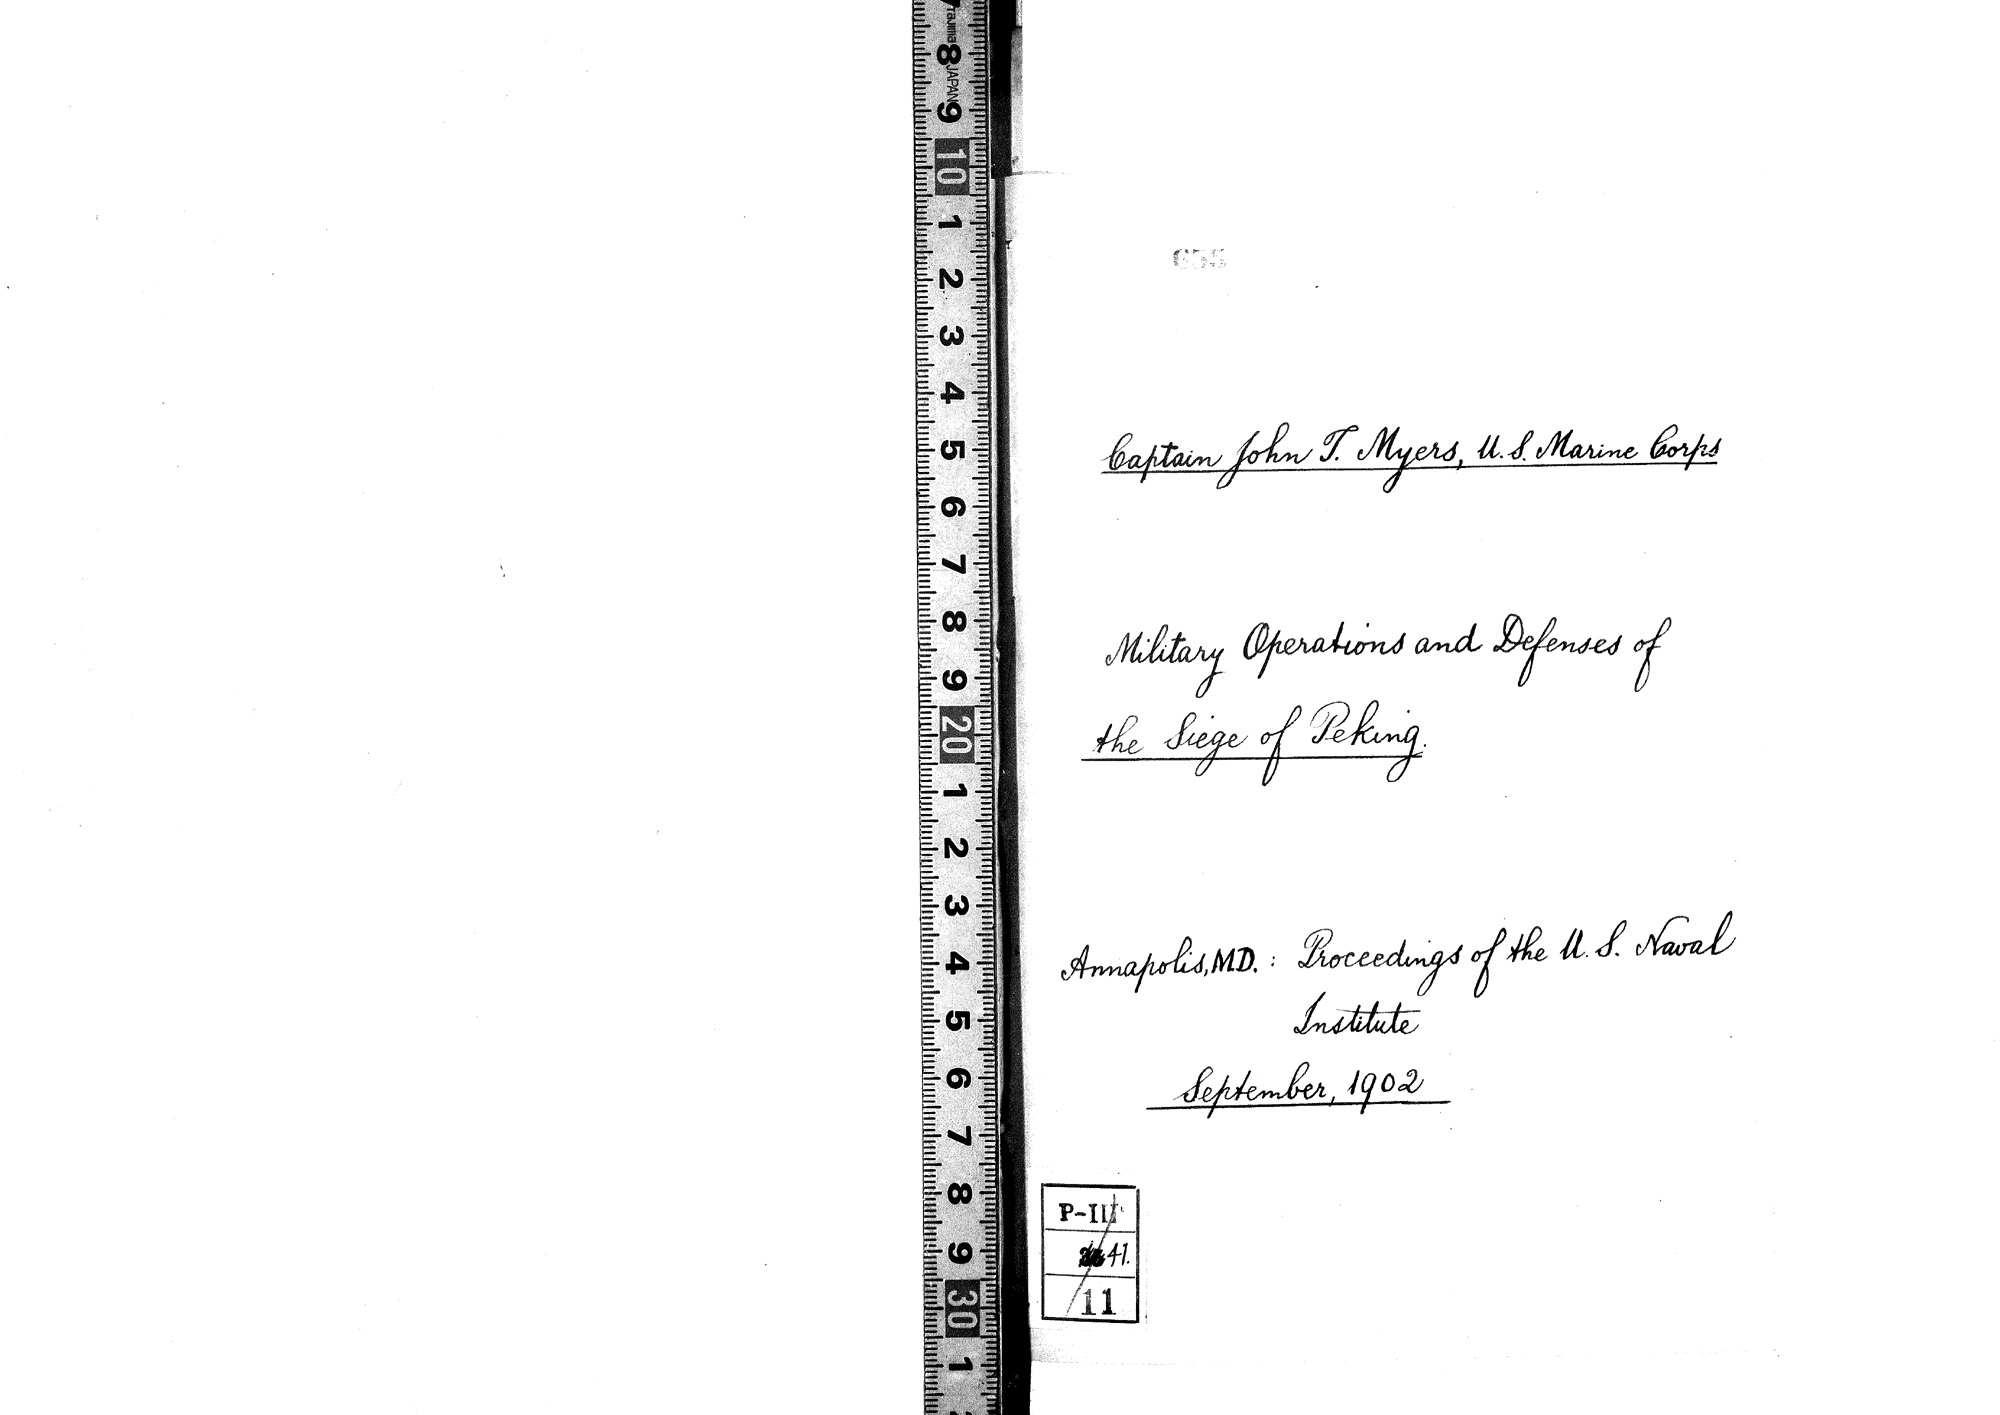 Captain John T. Myers, U.S. Marine Corps
Military Operations and Defenses of
the Siege of Peking.
Annapolis, MD. : Proceedings of the U.S. Naval
Institute
September, 1902
P-III
41.
11
7
Tajima JAPAN
8
9
10
1
2
3
4
5
6
7
8
9
20
1
2
3
4
5
6
7
8
9
30
1